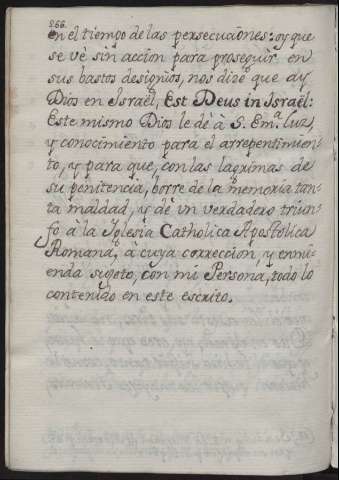 266.
en el tiempo de las persecuciones: oy que
se vè sin accion para proseguir en
sus bastos designios, nos dize que ay
Dios en Israël, Est Deus in Israël:
Este mismo Dios le dè à S. Em.ª luz,
y conocimiento para el arrepentimien-
to, y para que, con las lagrimas de
su penitencia, borre de la memoria tan-
ta maldad, y dè un verdadero triun-
fo à la Iglesia Catholica Apostolica
Romana, à cuya correccion, y enmi-
enda sugeto, con mi Persona, todo lo
contenido en este escrito.